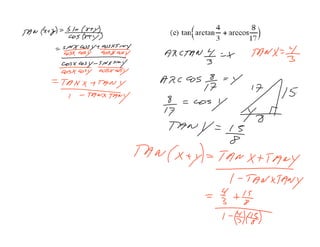 TAN(x+y) = sin(x+y) / cos(x+y)
= sinx cosy + cosx siny / cosx cosy cosx cosy
cosx cosy - sinx siny / cosx cosy cosx cosy
= TANX + TANY / 1 - TANX TANY
(e) tan(arctan 4/3 + arccos 8/17)
ARCTAN 4/3 = x TANX = 4/3
ARC COS 8/17 = y
8/17 = cos y
17 15
y 8
TAN y = 15/8
TAN(x+y) = TANX + TANY / 1 - TANXTANY
= 4/3 + 15/8 / 1 - (4/3)(15/8)